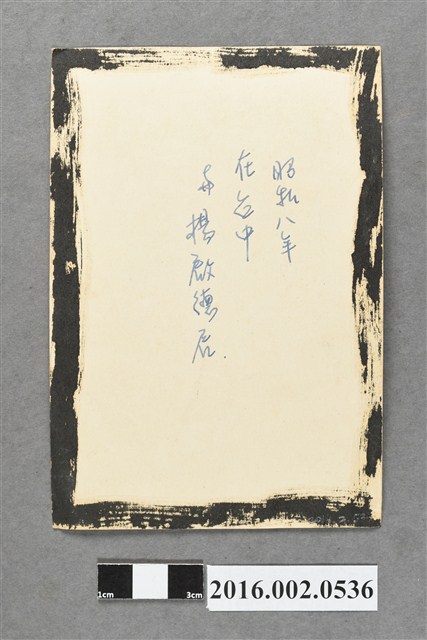 昭和八年
在台中
与楊啟德君.
1cm 3cm
2016.002.0536